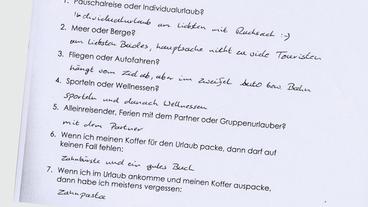 1. Pauschalreise oder Individualurlaub?
Individualurlaub am liebsten mit Rucksack :-)
2. Meer oder Berge?
am liebsten Beides, hauptsache nicht zu viele Touristen
3. Fliegen oder Autofahren?
hängt vom Ziel ab, aber im zweifel Auto bzw. Bahn
4. Sporteln oder Wellnessen?
Sporteln und danach Wellnessen
5. Alleinreisender, Ferien mit dem Partner oder Gruppenurlauber?
mit dem Partner
6. Wenn ich meinen Koffer für den Urlaub packe, dann darf auf
keinen Fall fehlen:
Zahnbürste und ein gutes Buch
7. Wenn ich im Urlaub ankomme und meinen Koffer auspacke,
dann habe ich meistens vergessen:
Zahnpasta